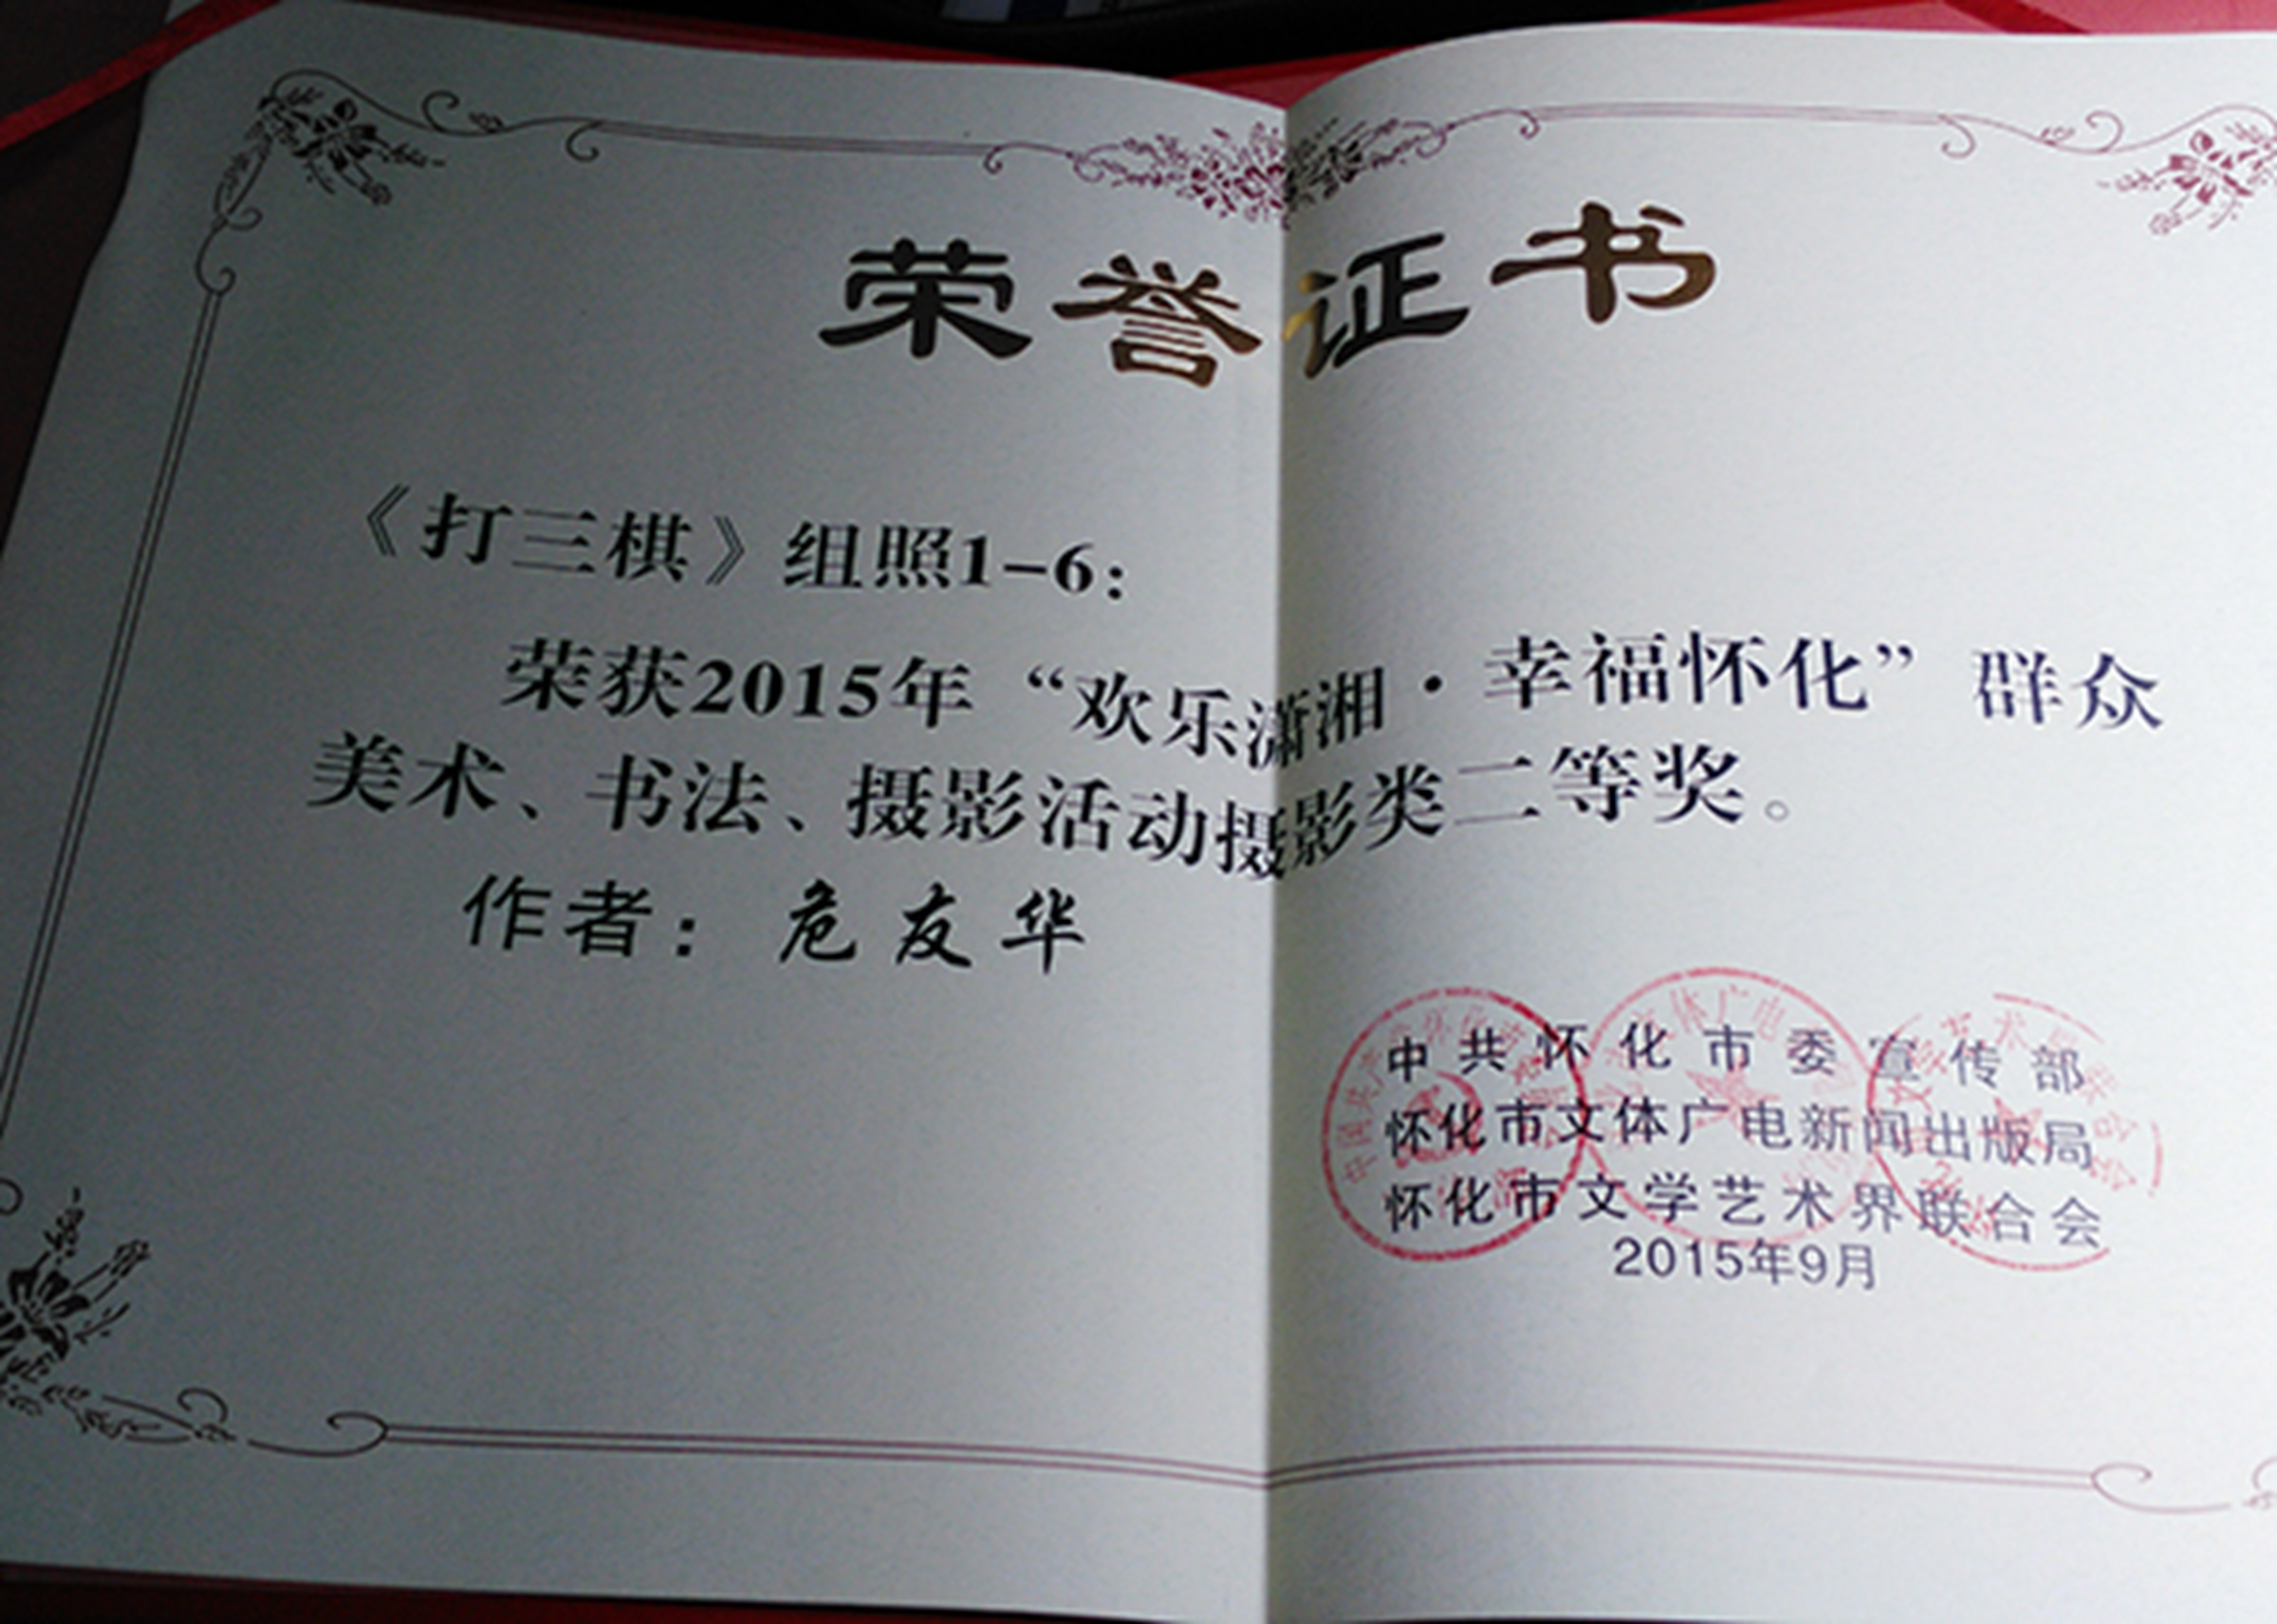 荣誉证书
《打三棋》组照1-6：
荣获2015年“欢乐潇湘·幸福怀化”群众
美术、书法、摄影活动摄影类二等奖。
作者：危友华
中共怀化市委宣传部
怀化市文体广电新闻出版局
怀化市文学艺术界联合会
2015年9月